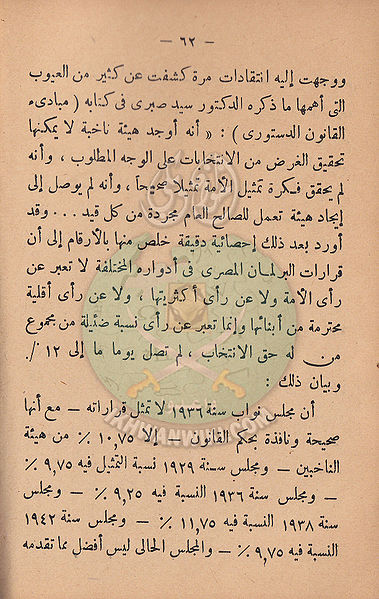 — ٦٢ —
ووجهت إليه انتقادات مرة كشفت عن كثير من العيوب
التى أهمها ما ذكره الدكتور سيد صبرى فى كتابه ( مبادىء
القانون الدستورى ) : « أنه أوجد هيئة ناخبة لا يمكنها
تحقيق الغرض من الانتخابات على الوجه المطلوب ، وأنه
لم يحقق فكرة تمثيل الأمة تمثيلا صحيحاً ، وأنه لم يوصل إلى
إيجاد هيئة تعمل للصالح العام مجردة من كل قيد ... وقد
أورد بعد ذلك إحصائية دقيقة خلص منها بالأرقام إلى أن
قرارات البرلمان المصرى فى أدواره المختلفة لا تعبر عن
رأى الأمة ولا عن رأى أكثريتها ، ولا عن رأى أقلية
محترمة من أبنائها وإنما تعبر عن رأى نسبة ضئيلة من مجموع
من له حق الانتخاب ، لم تصل يوما ما إلى ١٢ ٪
وبيان ذلك :
أن مجلس نواب سنة ١٩٣٦ لا تمثل قراراته — مع أنها
صحيحة ونافذة بحكم القانون — إلا ١٠,٧٥ ٪ من هيئة
الناخبين — ومجلس سنة ١٩٢٩ نسبة التمثيل فيه ٩,٧٥ ٪
— ومجلس سنة ١٩٣٦ النسبة فيه ٩,٢٥ ٪ — ومجلس سنة
١٩٣٨ النسبة فيه ١١,٧٥ ٪ — ومجلس سنة ١٩٤٢
النسبة فيه ٩,٧٥ ٪ — والمجلس الحالى ليس أفضل مما تقدمه
IKHWANWIKI.COM